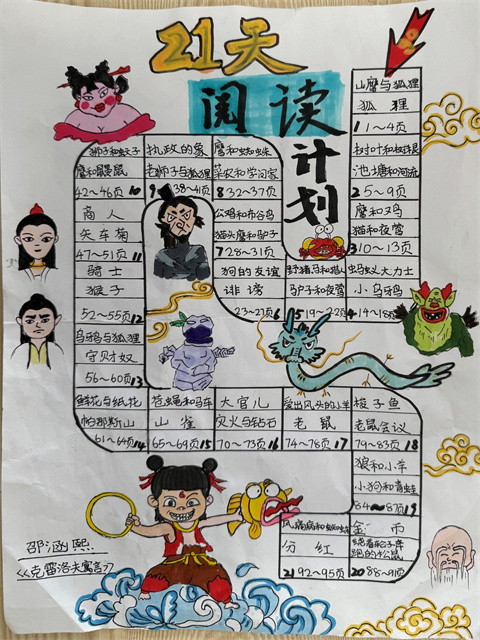 21天
阅读
计划
山鹰与狐狸
狐狸
1 1~4页
树叶和树根
池塘和河流
2 5~9页
鹰和鸡
猫和夜莺
3 10~13页
虫蚂蚁大力士
小乌鸦
4 14~18页
野猪马和猎人
驴子和夜莺
5 19~22页
狗的友谊
诽谤
23~27页 6
公鸡和布谷鸟
猫头鹰和驴子
7 28~31页
鹰和蜘蛛
菜农和学问家
8 32~37页
执政的象
老狮子与狐狸
9 38~41页
狮子和蚊子
鹰和鼹鼠
42~46页 10
商人
矢车菊
47~51页 11
骑士
猴子
52~55页 12
乌鸦与狐狸
守财奴
56~60页 13
鲜花与纸花
帕那斯山
61~64页 14
苍蝇和马车
山雀
65~69页 15
大官儿
灾火与钻石
70~73页 16
爱出风头的小羊
老鼠
74~78页 17
梭子鱼
老鼠会议
79~83页 18
狼和小羊
小狗和青蛙
84~87页 19
金币
跑的小松鼠
20 88~91页
风痛病和蜘蛛
分红
21 92~95页
邵涵熙
《克雷洛夫寓言》